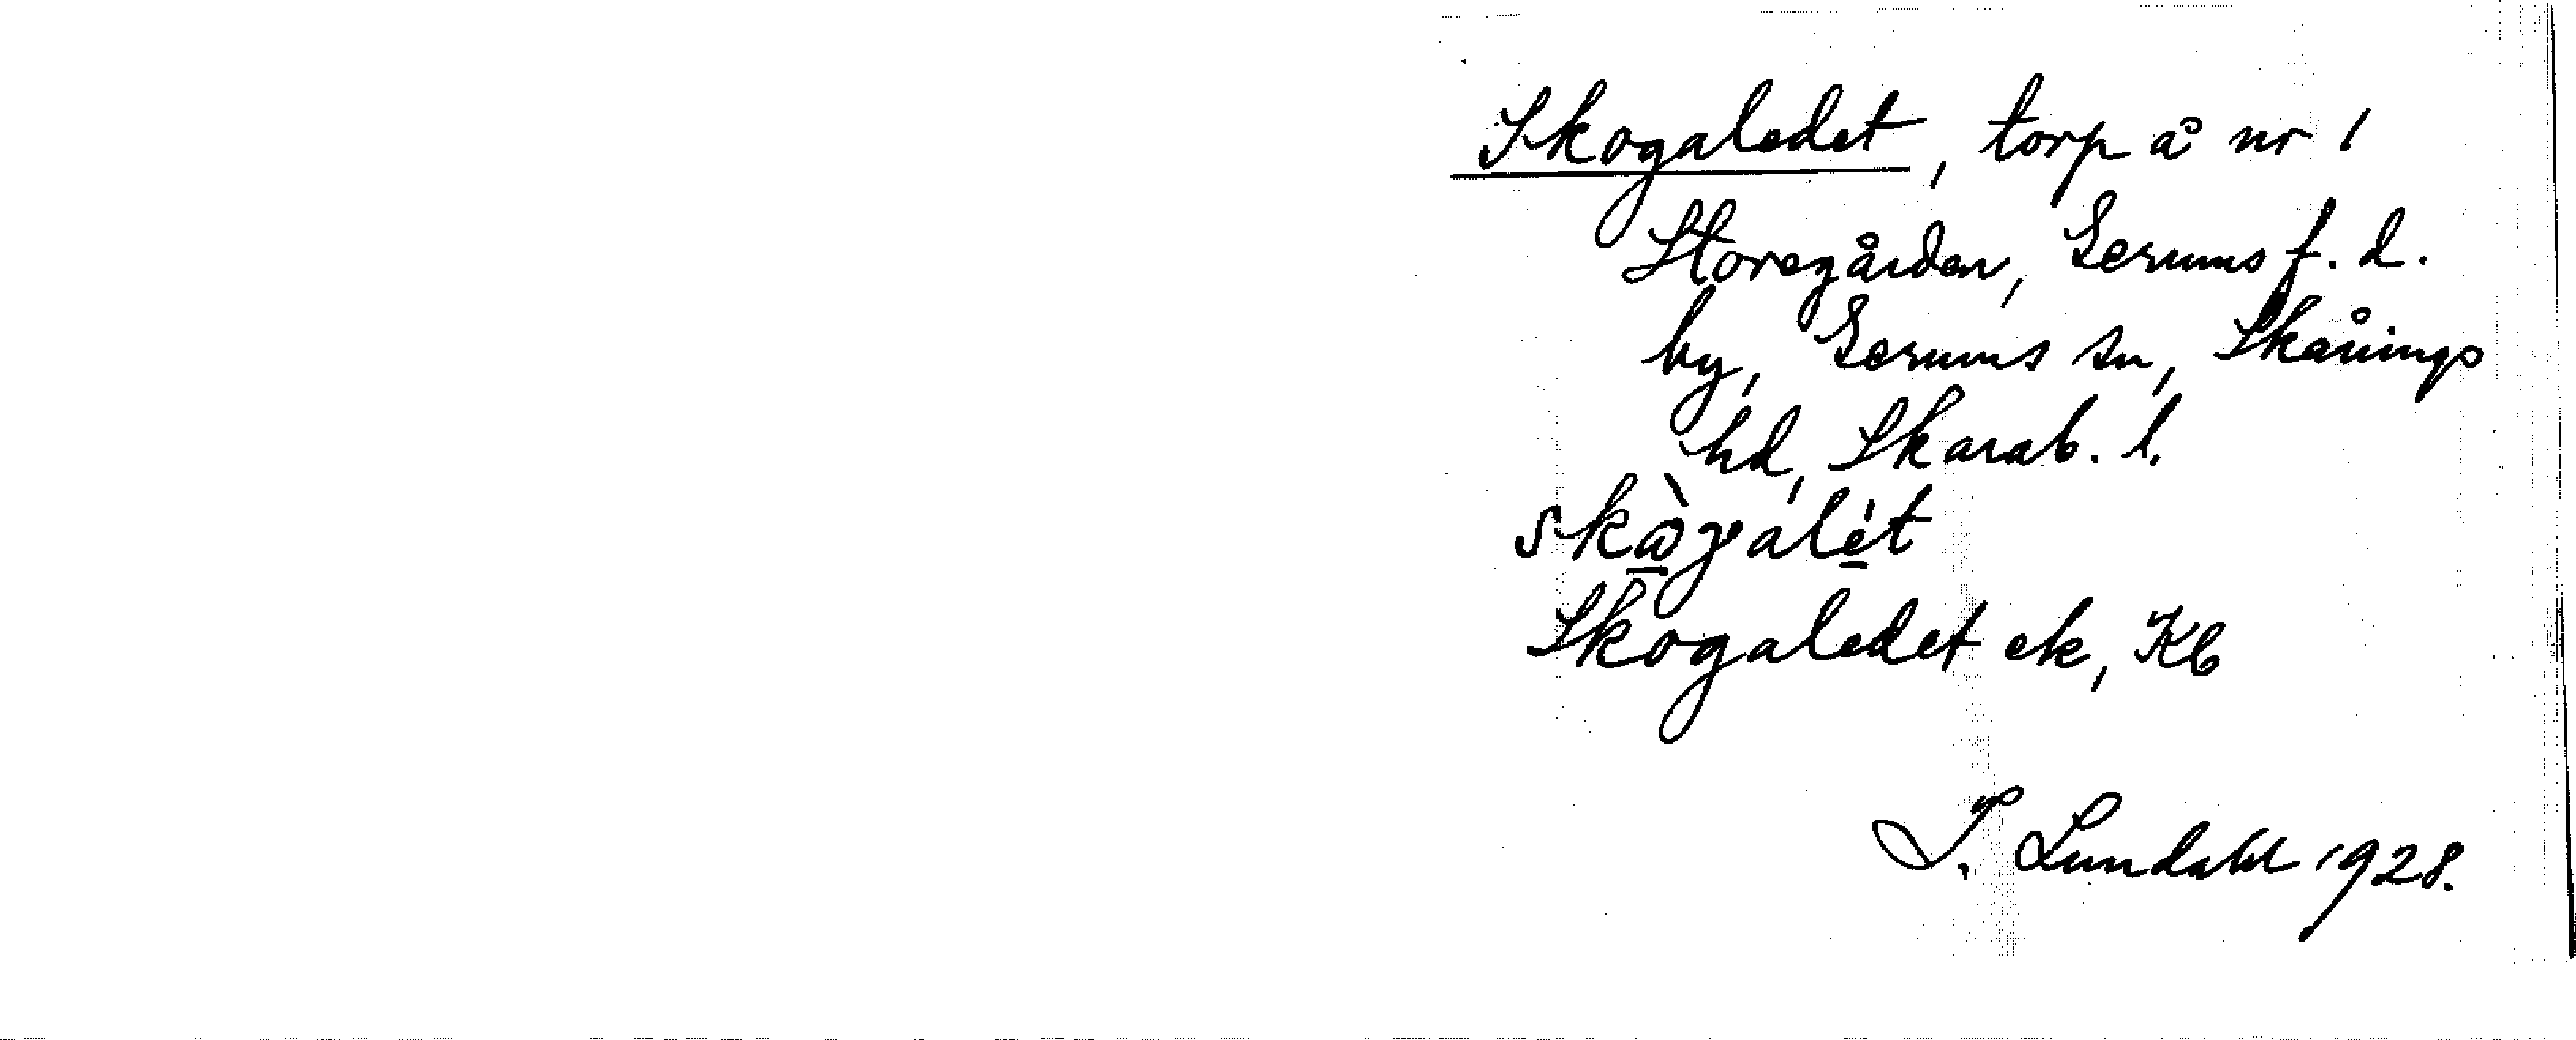 Skogaledet, torp å nr 1
Storegården, Gerums f.d.
by, Gerums sn, Skånings
hd, Skarab. l.
Skogaledet ek, Kb
I. Lundahl 1928.